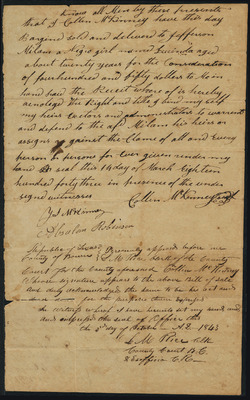 Know all Men by these presents
that I Collin McKinney have this day
Bargend Sold and delivered to Jefferson
Milam a Negro girl named aged
about twenty years for the Consideration
of four hundred and fifty dollars to Me in
hand paid the Receit whereof is hereby
acnolege the Right and title of bind my self
my heirs Exctors and administrators to warrent
and defend to the sd Milam his heirs or
assigns against the Clame of all and Every
person or persons for Ever given under my
hand & seal this 14 day of March Eighteen
hundred forty three in presence of the under
signe witnesses
Collin McKinney
McKinney
Robinson
Republic of Texas
County of Bowie
Personaly appeard before me
Clerk of the County
Court for the County aforesaid Collin McKinney
whose signature appears to the above Bill of Sale
and duly acknowledged the same to be his act and
for the purposes therein Expressed
To certify which I have hereunto set my hand and
the seal of office this
the day of October A.D. 1843
Clk
County Court B.C.